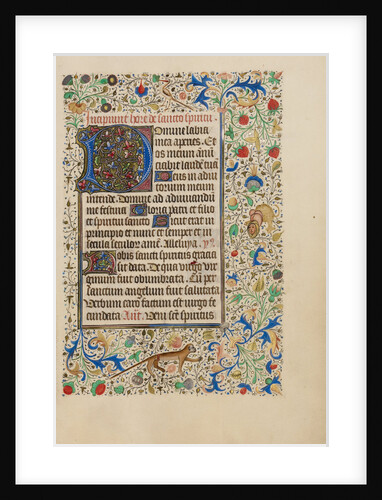 Incipiunt hore de sancto spiritu.
Domine labia
mea aperies. Et
os meum annū
ciabit laudē tuā
Deus in adiu
torium meum
intende. Domine ad adiuvandū
me festina Gloria patri et filio
et spiritui sancto Sicut erat in
principio et nunc et semper et in
secula seculorū amē. Alleluya. yᵖ
Nobis sancti spiritus gracia
sit data. De qua virgo vir
ginum fuit obumbrata. Cū per
sanctum angelum fuit salutata
Verbum caro factum est virgo fe
cundata Añe. Veni scē spiritus